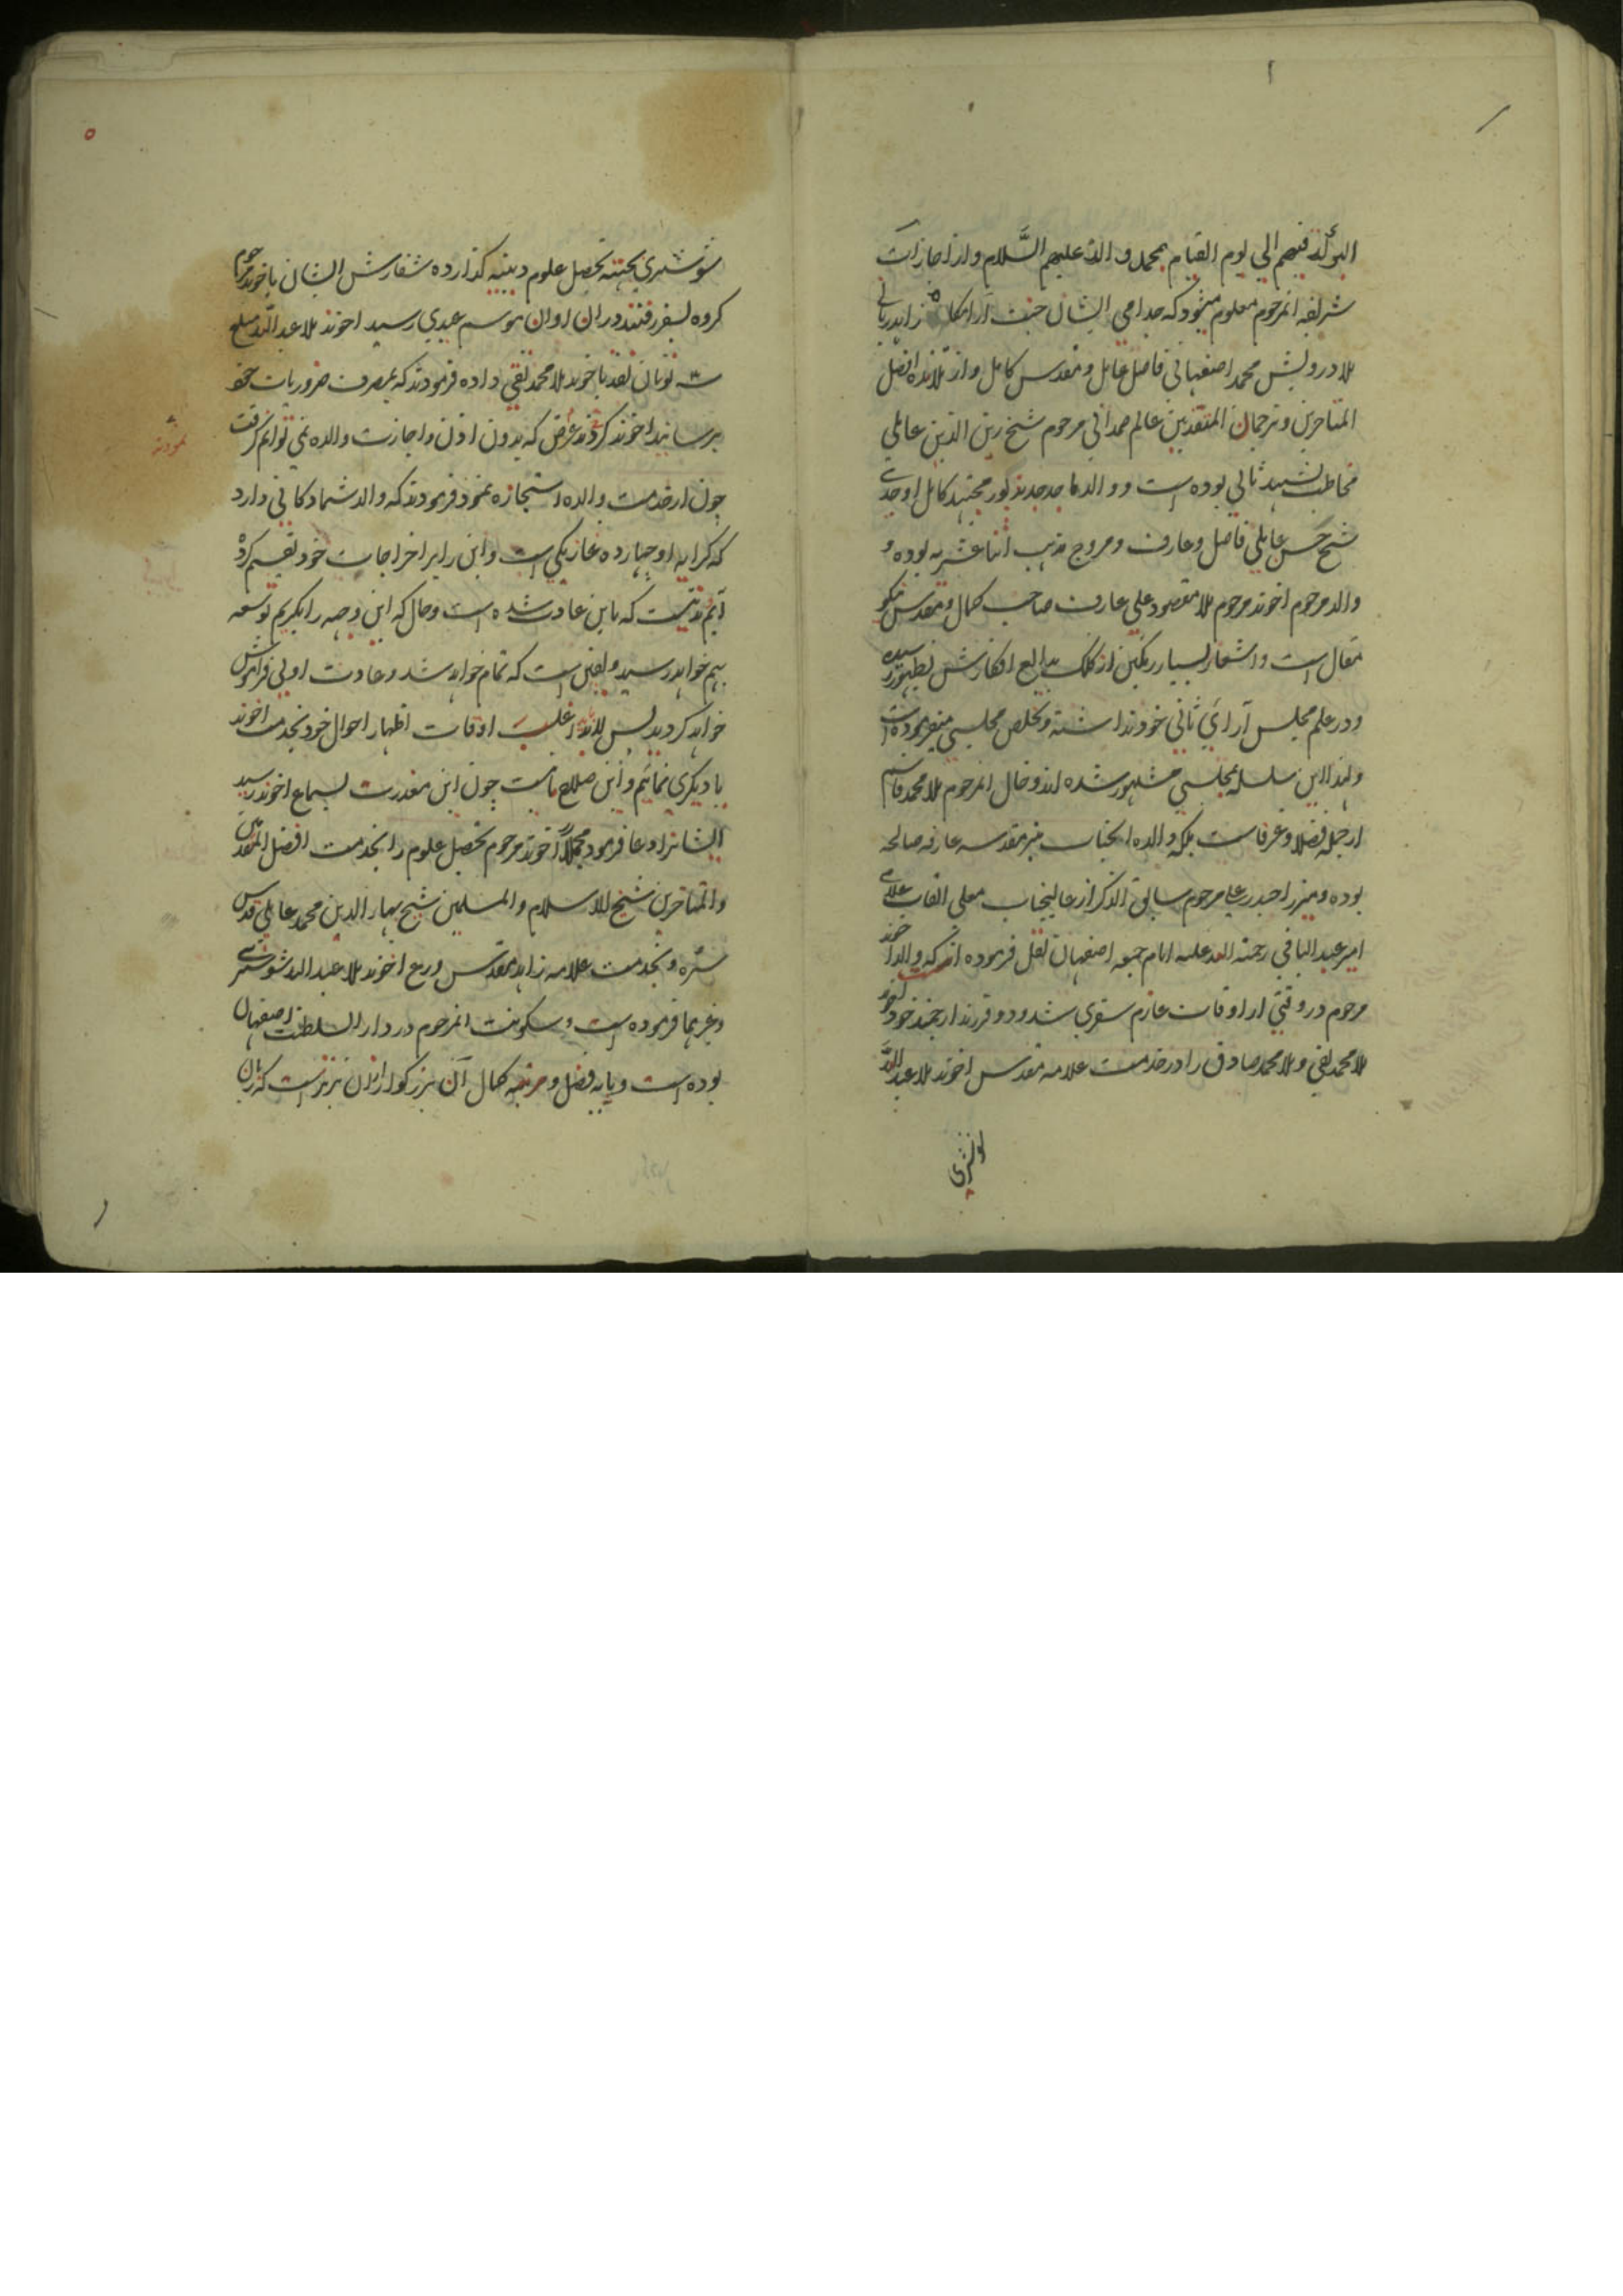 البركة فيهم الي يوم القيام بمحمد و اله عليهم السَّلام و از اجازات
شريفه انمرحوم معلوم ميشود كه جد امي ايشان جنت آرامكاه زاهد رباني
ملا درويش محمد اصفهاني فاضل عامل و مقدس كامل و از تلامذه افضل
المتاخرين و ترجمان المتقدمين عالم صمداني مرحوم شيخ زين الدين عاملي
مخاطب بشهيد ثاني بوده است و والد ماجد جد مذكور مجتهد كامل اوحدي
شيخ حسن عاملي فاضل و عارف و مروج مذهب اثنا عشريه بوده و
والد مرحوم اخوند مرحوم ملا مقصود علي عارف صاحب كمال و مقدس نيكو
مقال است و اشعار بسيار رنكين از كلك بدايع افكارش بظهور رسيده
و در علم مجلس آراي ثاني خود نداشته و تخلص مجلسي ميفرموده است
و لهذا اين سلسله بمجلسي مشهور شده اند و خال انمرحوم ملا محمد قاسم
از جمله فضلا و عرفاست بلكه والده انجناب نيز مقدسه عارفه صالحه
بوده و ميرزا حيدر علي مرحوم سابق الذكر از عاليجناب معلي القاب علامي
امير عبد الباقي رحمة الله عليه امام جمعه اصفهان نقل فرموده اند كه والد اخوند
مرحوم در وقتي از اوقات عازم سفري شد و دو فرزند ارجمند خود اخوند
ملا محمد تقي و ملا محمد صادق را در خدمت علامه مقدس اخوند ملا عبد اللّه
شوشتري
شوشتري بجهته تحصيل علوم دينيه كذارده سفارش ايشان باخوند مرحوم
كروه بسفر رفتند در ان اوان موسم عيدي رسيد اخوند ملا عبد اللّه مبلغ
سه تومان نقد باخوند ملا محمد تقي داده فرمودند كه بمصرف ضروريات خود
برسانيد اخوند عرض كردند كه بدون اذن و اجازت والده نمي توانم كرفت
چون از خدمت والده استجازه نمود فرمودند كه والد شما دكاني دارد
كه كرايه او چهارده غازبكي است و اين را بر اخراجات خود تقسيم كرده
ايم مدتيست كه باين عادت شده است و حال كه اين وجه را بكيريم توسعه
بهم خواهد رسيد و يقين است كه تمام خواهد شد و عادت اولي فراموش
خواهد كرديد پس لابد اغلب اوقات اظهار احوال خود بخدمت اخوند
يا ديكري نمائيم و اين صلاح ما نيست چون اين معذرت بسماع اخوند رسيد
ايشانرا دعا فرمود مجملاً اخوند مرحوم تحصيل علوم را بخدمت افضل المتقدمين
و المتاخرين شيخ الاسلام و المسلمين شيخ بهاء الدين محمد عاملي قدس
سره و بخدمت علامه زاهد مقدس ورع اخوند ملا عبد الله شوشتري
و غيرهما فرموده است و سكونت انمرحوم در دار السلطنت اصفهان
بوده است و پايه فضل و مرتبه كمال آن بزركوار از ان برتر است كه زبان